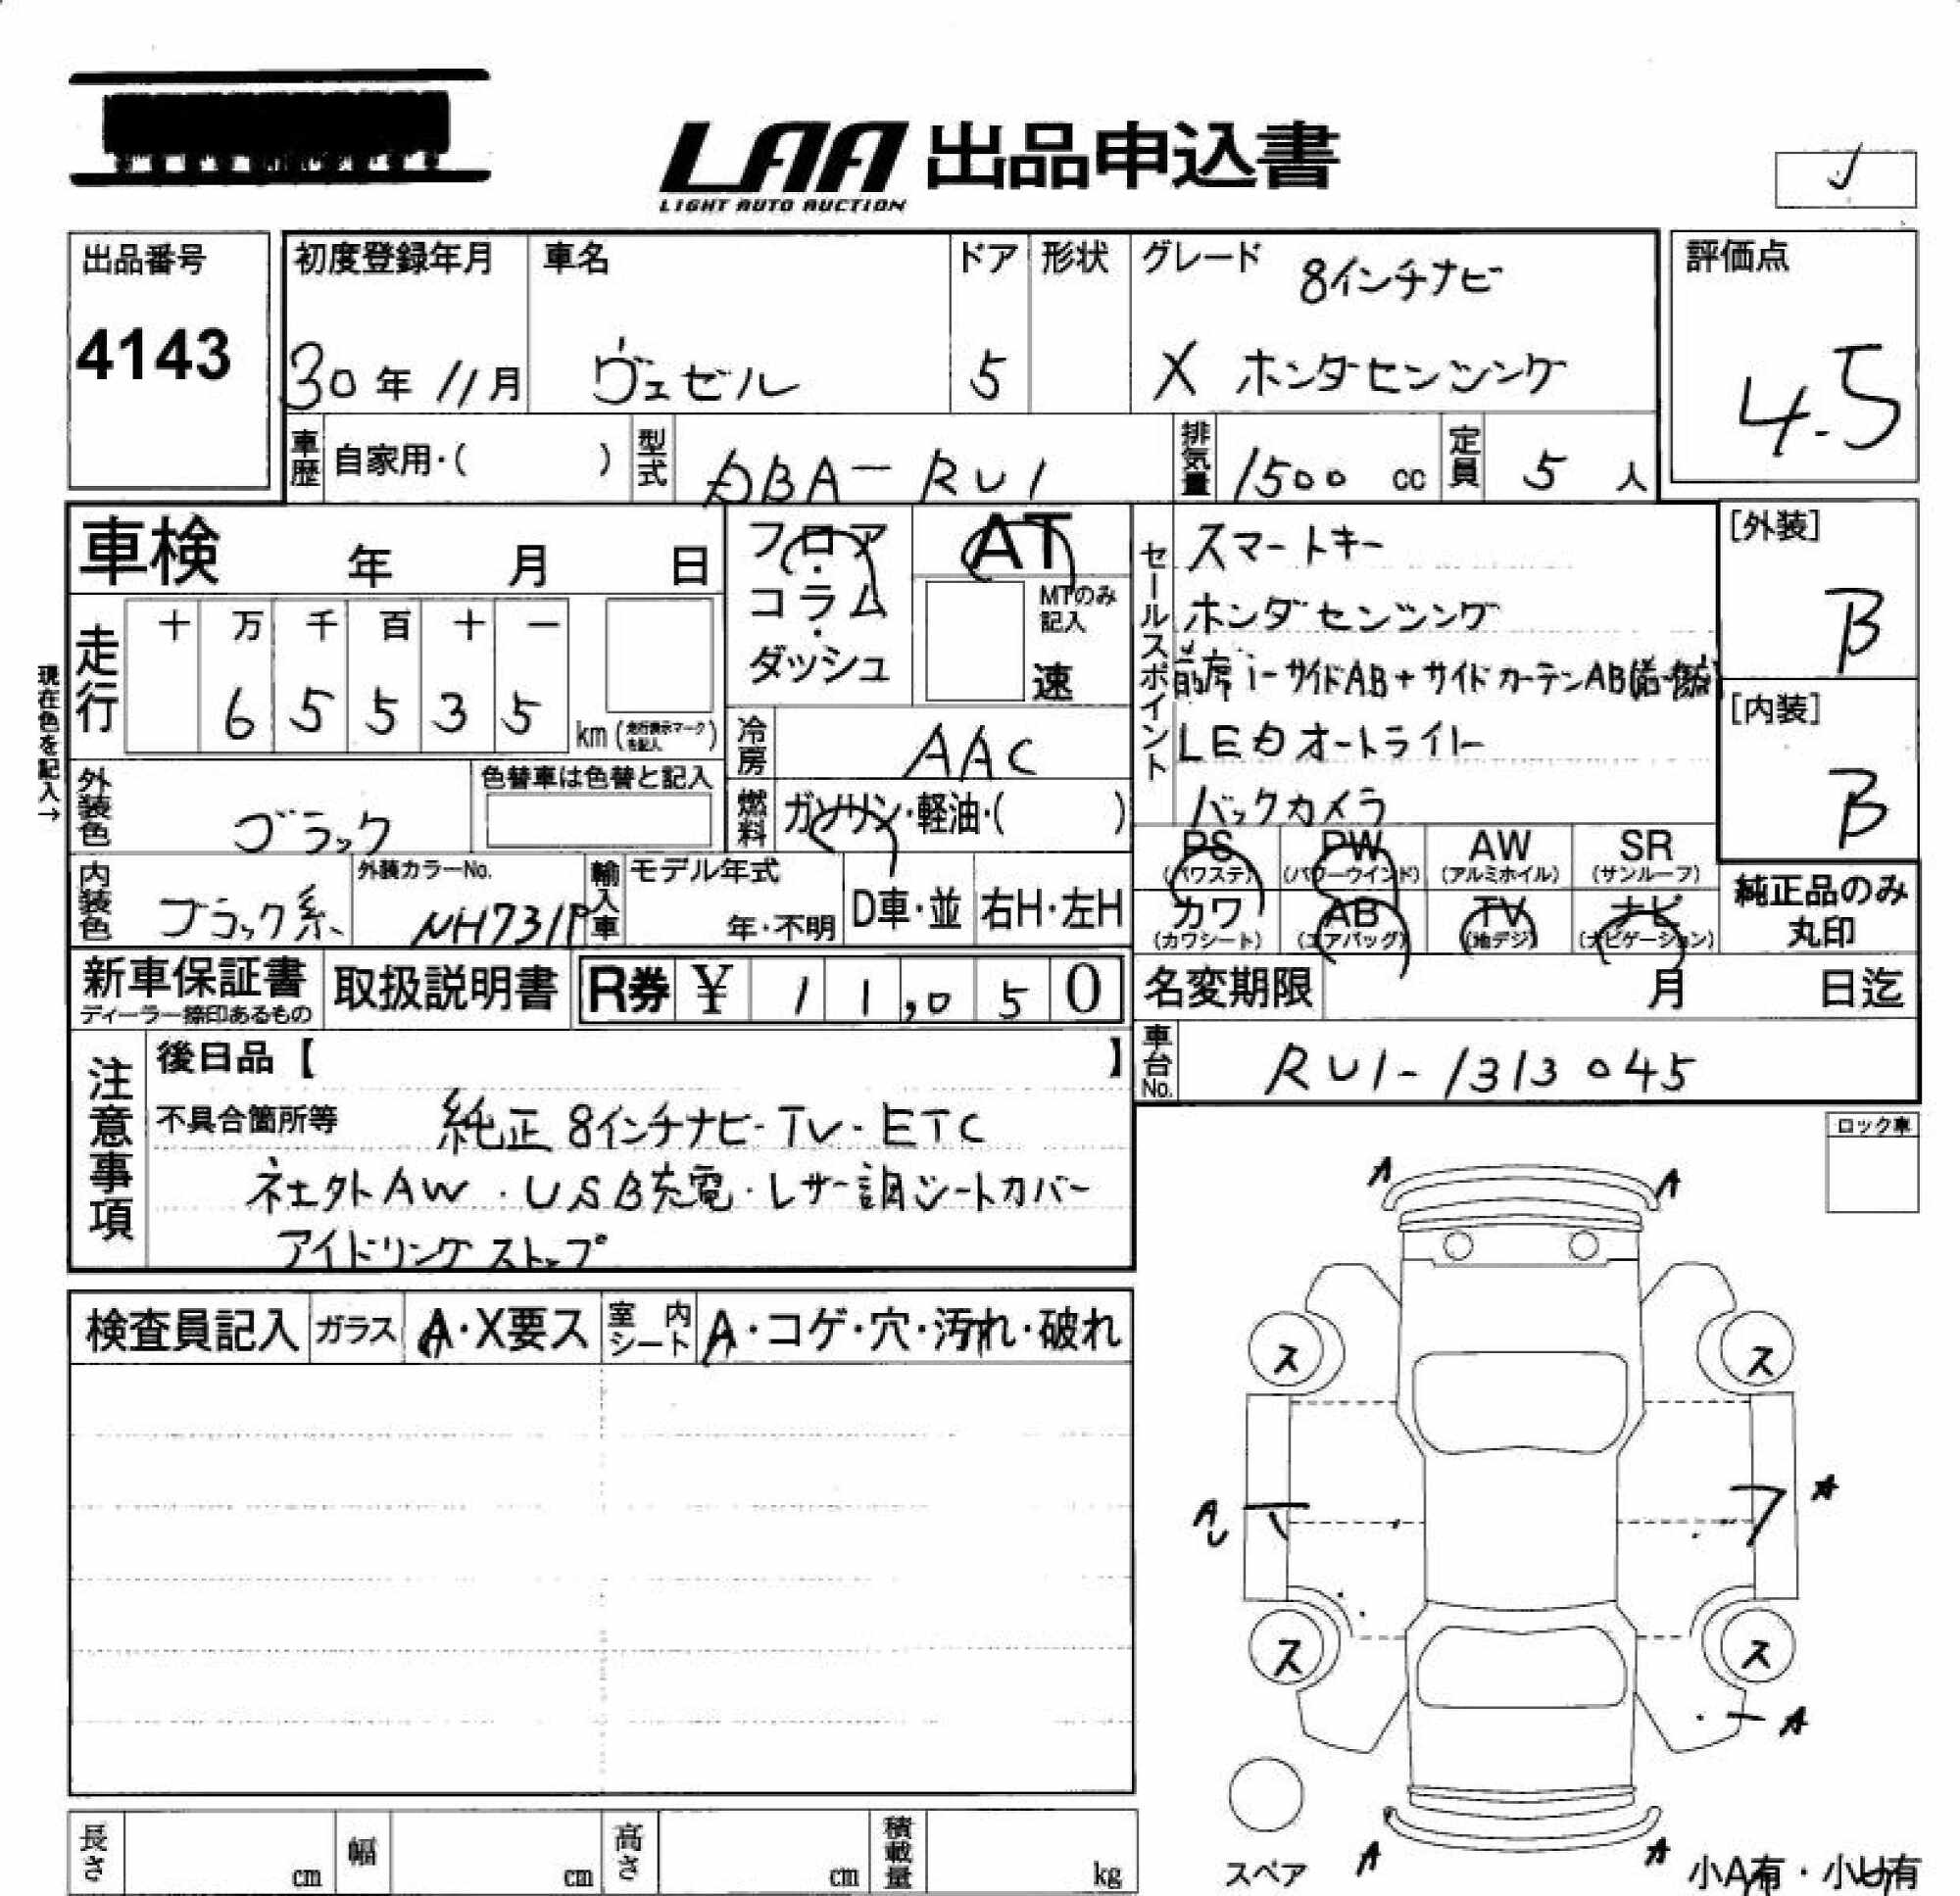 LAA 出品申込書
LIGHT AUTO AUCTION
出品番号
4143
初度登録年月
30年11月
車名
ヴェゼル
ドア
5
形状
グレード
8インチナビ
X ホンダセンシング
評価点
4.5
車歴
自家用・( )
型式
DBA-RU1
排気量
1500 cc
定員
5 人
車検 年 月 日
フロア・コラム・ダッシュ
AT
MTのみ記入
速
セールスポイント
スマートキー
ホンダセンシング
前席i-サイドAB+サイドカーテンAB
LEDオートライト
バックカメラ
[外装]
B
[内装]
B
現在色を記入→
走行
十 万 千 百 十 一
6 5 5 3 5
km (走行表示マークを記入)
冷房
AAC
外装色
ブラック
色替車は色替と記入
燃料
ガソリン・軽油・( )
内装色
ブラック系
外装カラーNo.
NH731P
輸入車
モデル年式
年・不明
D車・並
右H・左H
PS (パワステ)
PW (パワーウインド)
AW (アルミホイル)
SR (サンルーフ)
カワ (カワシート)
AB (エアバッグ)
TV (地デジ)
ナビ (ナビゲーション)
純正品のみ丸印
新車保証書
ディーラー捺印あるもの
取扱説明書
R券 ¥ 11,050
名変期限 月 日迄
車台No.
RU1-1313045
注意事項
後日品【 】
不具合箇所等
純正8インチナビ・TV・ETC
社外AW・USB充電・レザー調シートカバー
アイドリングストップ
ロック車
検査員記入
ガラス
A・X要ス
室内シート
A・コゲ・穴・汚れ・破れ
A A
ス ス
AU A
ス ス
A
A A
スペア
小A有・小U有
長さ cm
幅 cm
高さ cm
積載量 kg